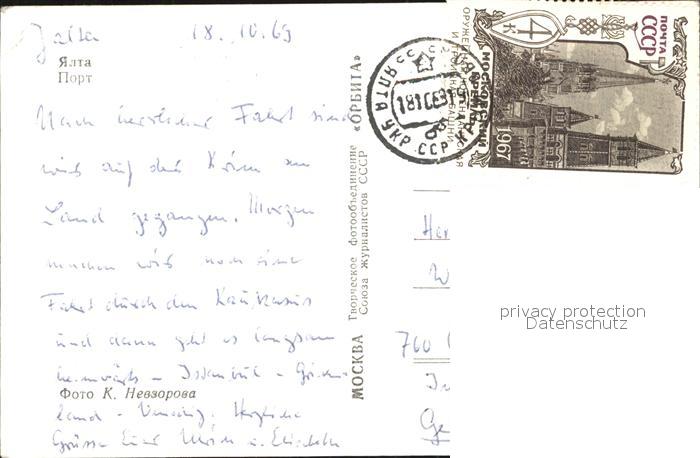 Jalta 18.10.69
Ялта
Порт
Nach herrlicher Fahrt sind
wir auf der Krim an
Land gegangen. Morgen
machen wir noch eine
Fahrt durch den Kaukasus
und dann geht es langsam
heimwärts - Istanbul - Griechen-
land - Venedig. Herzliche
Grüsse Eure u. Elisabeth
Фото К. Невзорова
МОСКВА «ОРБИТА»
Творческое фотообъединение
Союза журналистов СССР
ПОЧТА
СССР
4
К
МОСКОВСКИЙ
КРЕМЛЬ
1967
ЯЛТА УКР. ССР
760
privacy protection
Datenschutz